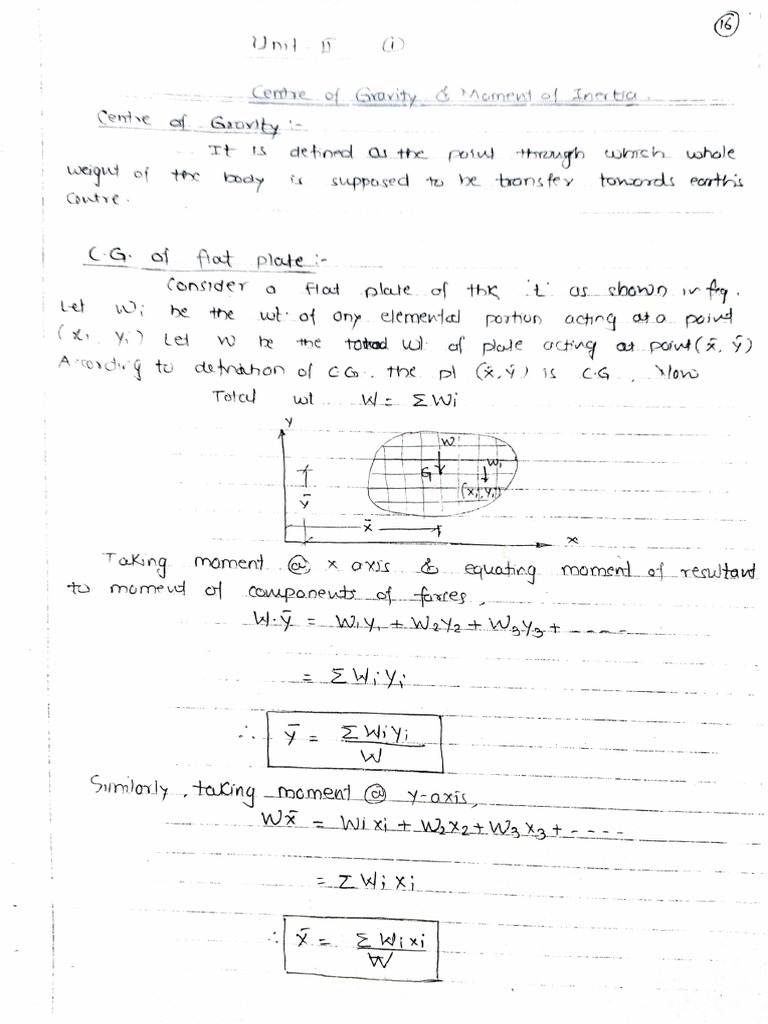 16
Unit - II (i)
Centre of Gravity & Moment of Inertia.
Centre of Gravity :-
It is defined as the point through which whole
weight of the body is supposed to be transfer towards earth's
centre.
C.G. of flat plate :-
Consider a flat plate of thk 't' as shown in fig.
Let Wi be the wt. of any elemental portion acting at a point
(xi, yi) Let W be the total wt. of plate acting at point (x̄, ȳ)
According to defination of C.G., the pt (x̄, ȳ) is C.G., Now
Total wt W = ΣWi
Y
W
Wi
G
(xi, yi)
ȳ
x̄
x
Taking moment @ x axis & equating moment of resultant
to moment of components of forces,
W.ȳ = W1y1 + W2y2 + W3y3 + -----
= ΣWiyi
∴ ȳ = ΣWiyi / W
Similarly, taking moment @ y-axis,
Wx̄ = Wixi + W2x2 + W3x3 + ----
= ΣWixi
∴ x̄ = ΣWixi / W